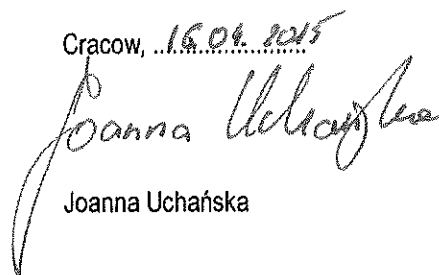 Cracow, 16.04.2015
Joanna Uchańska
Joanna Uchańska